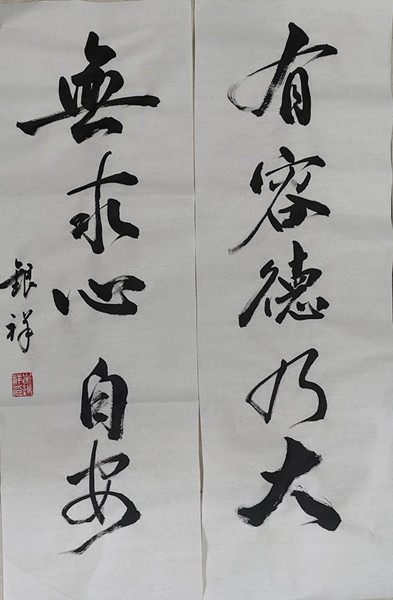 有容德乃大
無求心自安
銀祥